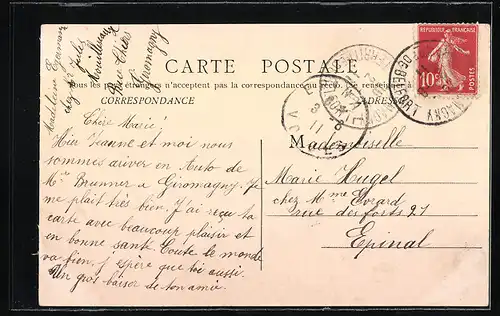 Madeleine Germain
chez Mr Jules
Rue Thiers
Giromagny
CARTE POSTALE
Tous les pays étrangers n'acceptent pas la correspondance au recto. Se renseigner à
CORRESPONDANCE
ADRESSE
RÉPUBLIQUE FRANÇAISE
10c
POSTES
DE BELFORT
Chère Marie
Hier Jeanne et moi nous
sommes ariver en Auto de
Mr Brunner a Giromagny. Je
me plait très bien. J'ai reçu ta
carte avec beaucoup plaisir et
en bonne santé. Toute le monde
va bien. J'espère que toi aussi.
Un gros baiser de ton amie
Mademoiselle
Marie Hugel
chez Mme Evrard
rue des forts 21
Epinal